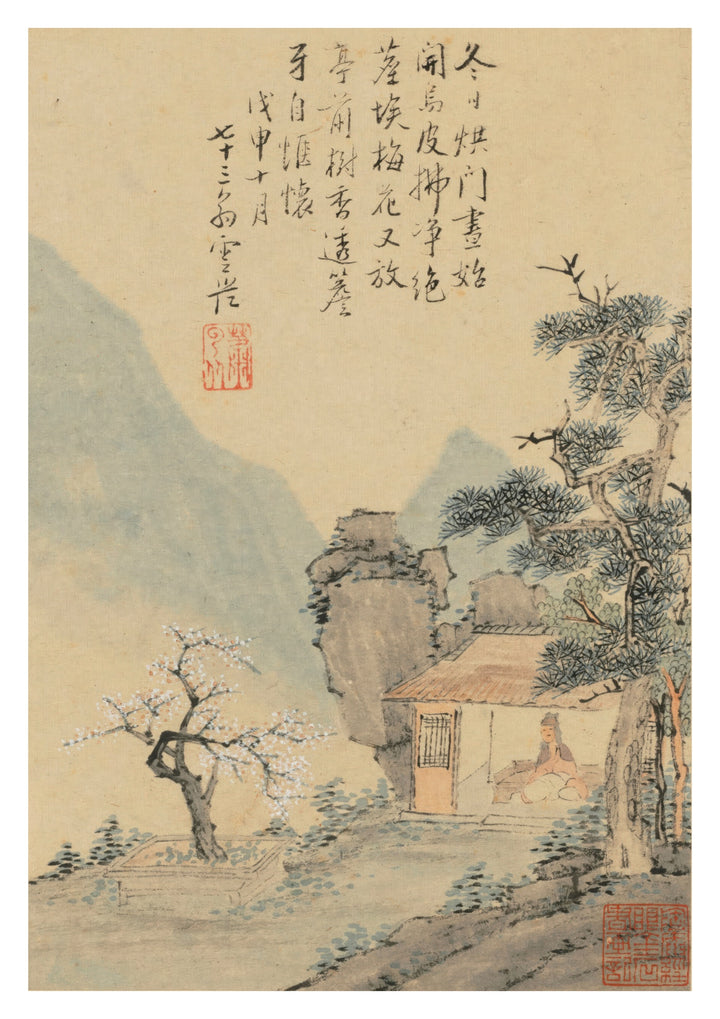 冬日烘門晝始
開烏皮拂淨絕
塵埃梅花又放
亭前樹香透簷
牙自愜懷
戊申十月
七十三翁雲從